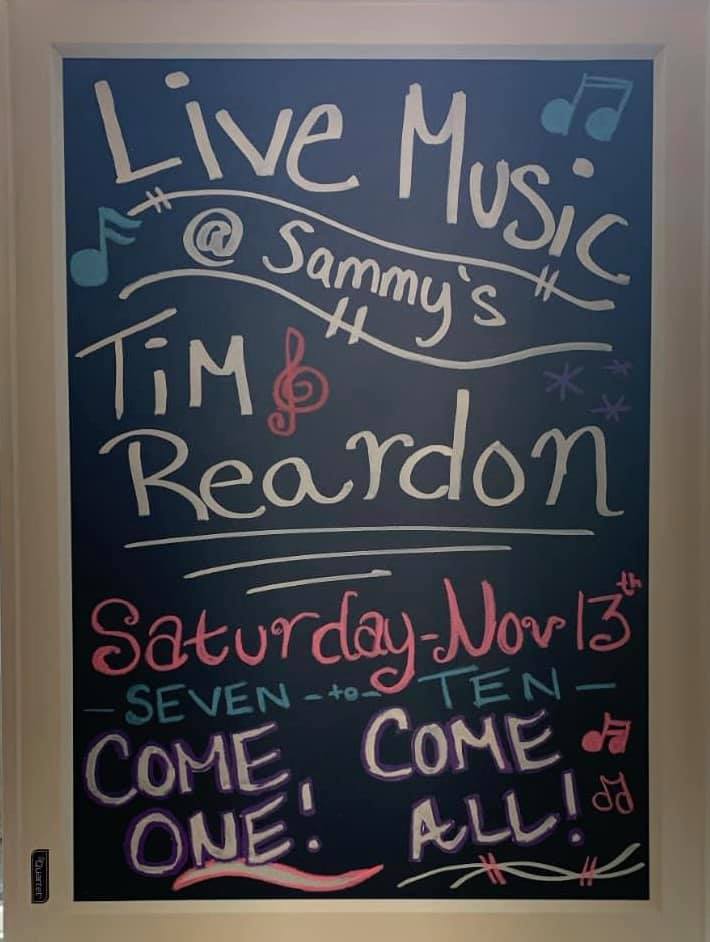 Live Music
@ Sammy's
TiM
Reardon
Saturday-Nov 13th
- SEVEN - to - TEN -
COME COME
ONE! ALL!
Quartet